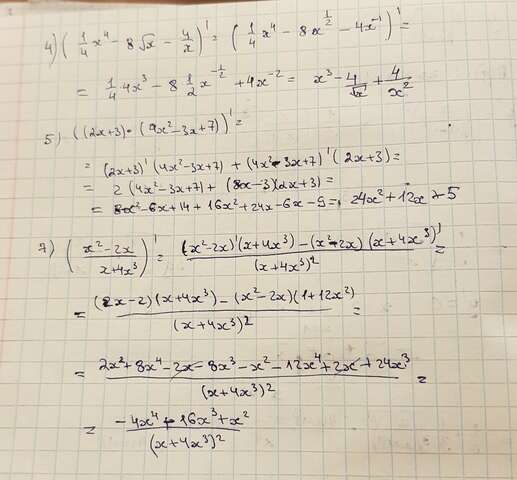 4) (1/4 x⁴ - 8√x - 4/x)' = (1/4 x⁴ - 8x^(1/2) - 4x⁻¹)' =
= 1/4 4x³ - 8 1/2 x^(-1/2) + 4x⁻² = x³ - 4/√x + 4/x²
5) ((2x+3)·(9x²-3x+7))' =
= (2x+3)'(4x²-3x+7) + (4x²-3x+7)'(2x+3) =
= 2(4x²-3x+7) + (8x-3)(2x+3) =
= 8x²-6x+14+16x²+24x-6x-9 = 24x²+12x+5
7) ((x²-2x)/(x+4x³))' = ((x²-2x)'(x+4x³) - (x²-2x)(x+4x³)')/(x+4x³)² =
= ((2x-2)(x+4x³) - (x²-2x)(1+12x²))/(x+4x³)² =
= (2x²+8x⁴-2x-8x³-x²-12x⁴+2x+24x³)/(x+4x³)² =
= (-4x⁴+16x³+x²)/(x+4x³)²